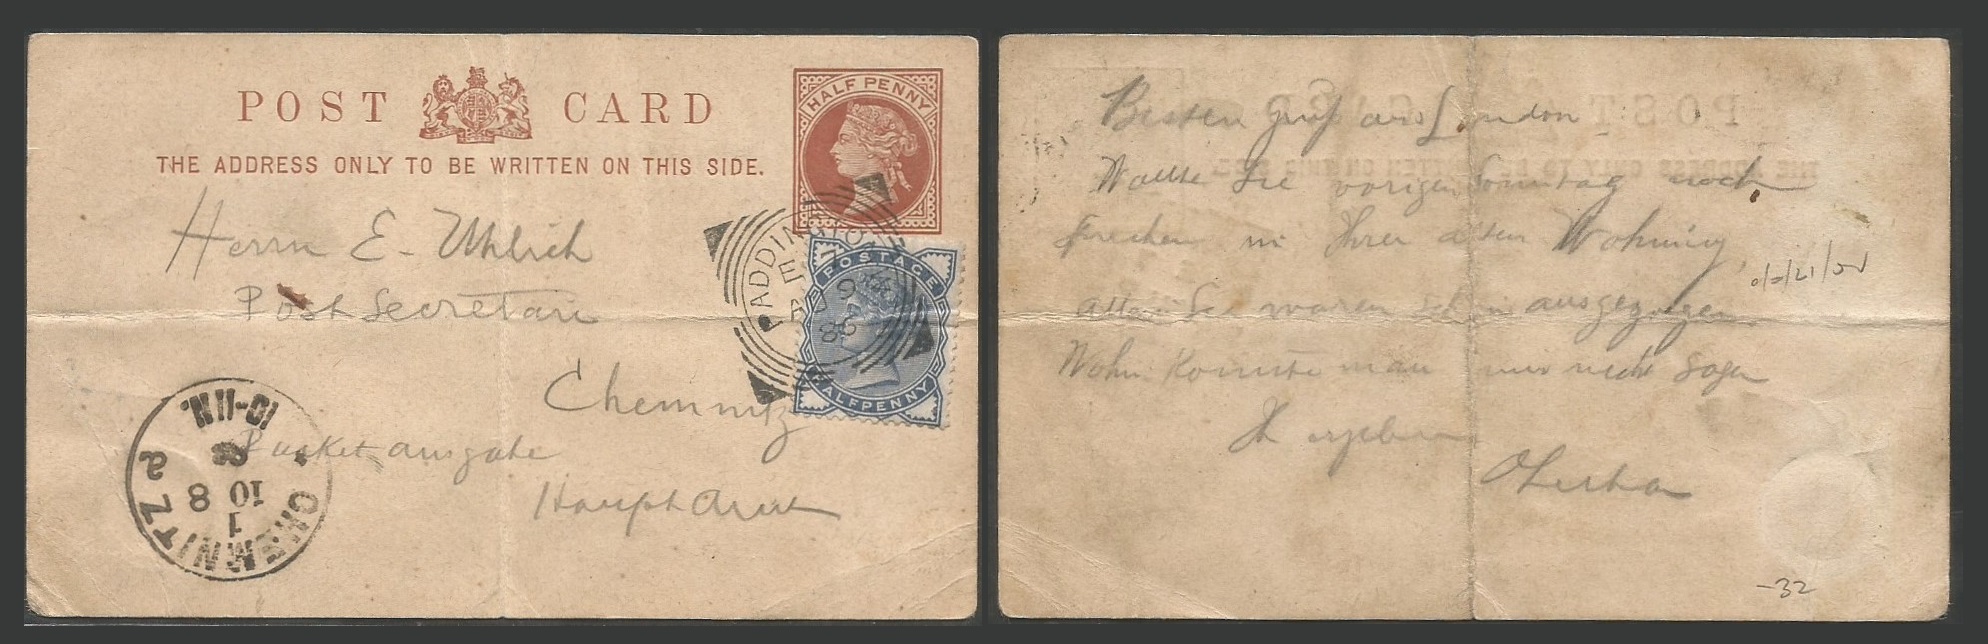 POST CARD
THE ADDRESS ONLY TO BE WRITTEN ON THIS SIDE.
HALF PENNY
Herrn E. Uhlich
Post Secretair
Chemnitz
Packet ausgabe
Haupt Amt
PADDINGTON
AU 9
86
POSTAGE
HALFPENNY
CHEMNITZ
1
10 8
10-11N.
Besten Gruß aus London
Wollte Sie vorigen Sonntag noch
sprechen in Ihrer alten Wohnung,
allein Sie waren schon ausgezogen.
Wohin konnte man mir nicht sagen
Ihr ergebener
-32
POST CARD
THE ADDRESS ONLY TO BE WRITTEN ON THIS SIDE.